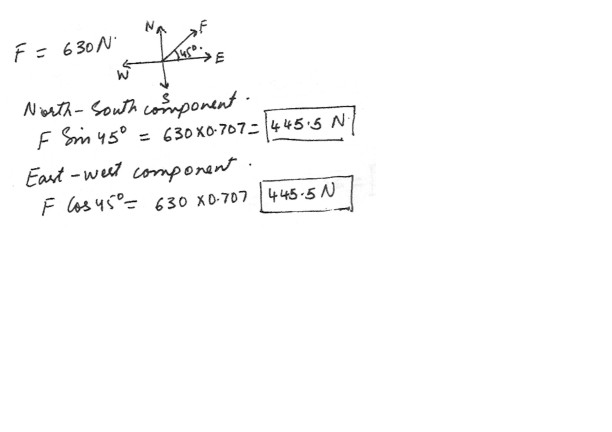 N F
F = 630N. 45°. E
W
S
North-South component.
F Sin 45° = 630x0.707= 445.5 N
East-west component.
F Cos 45°= 630 x0.707 445.5 N